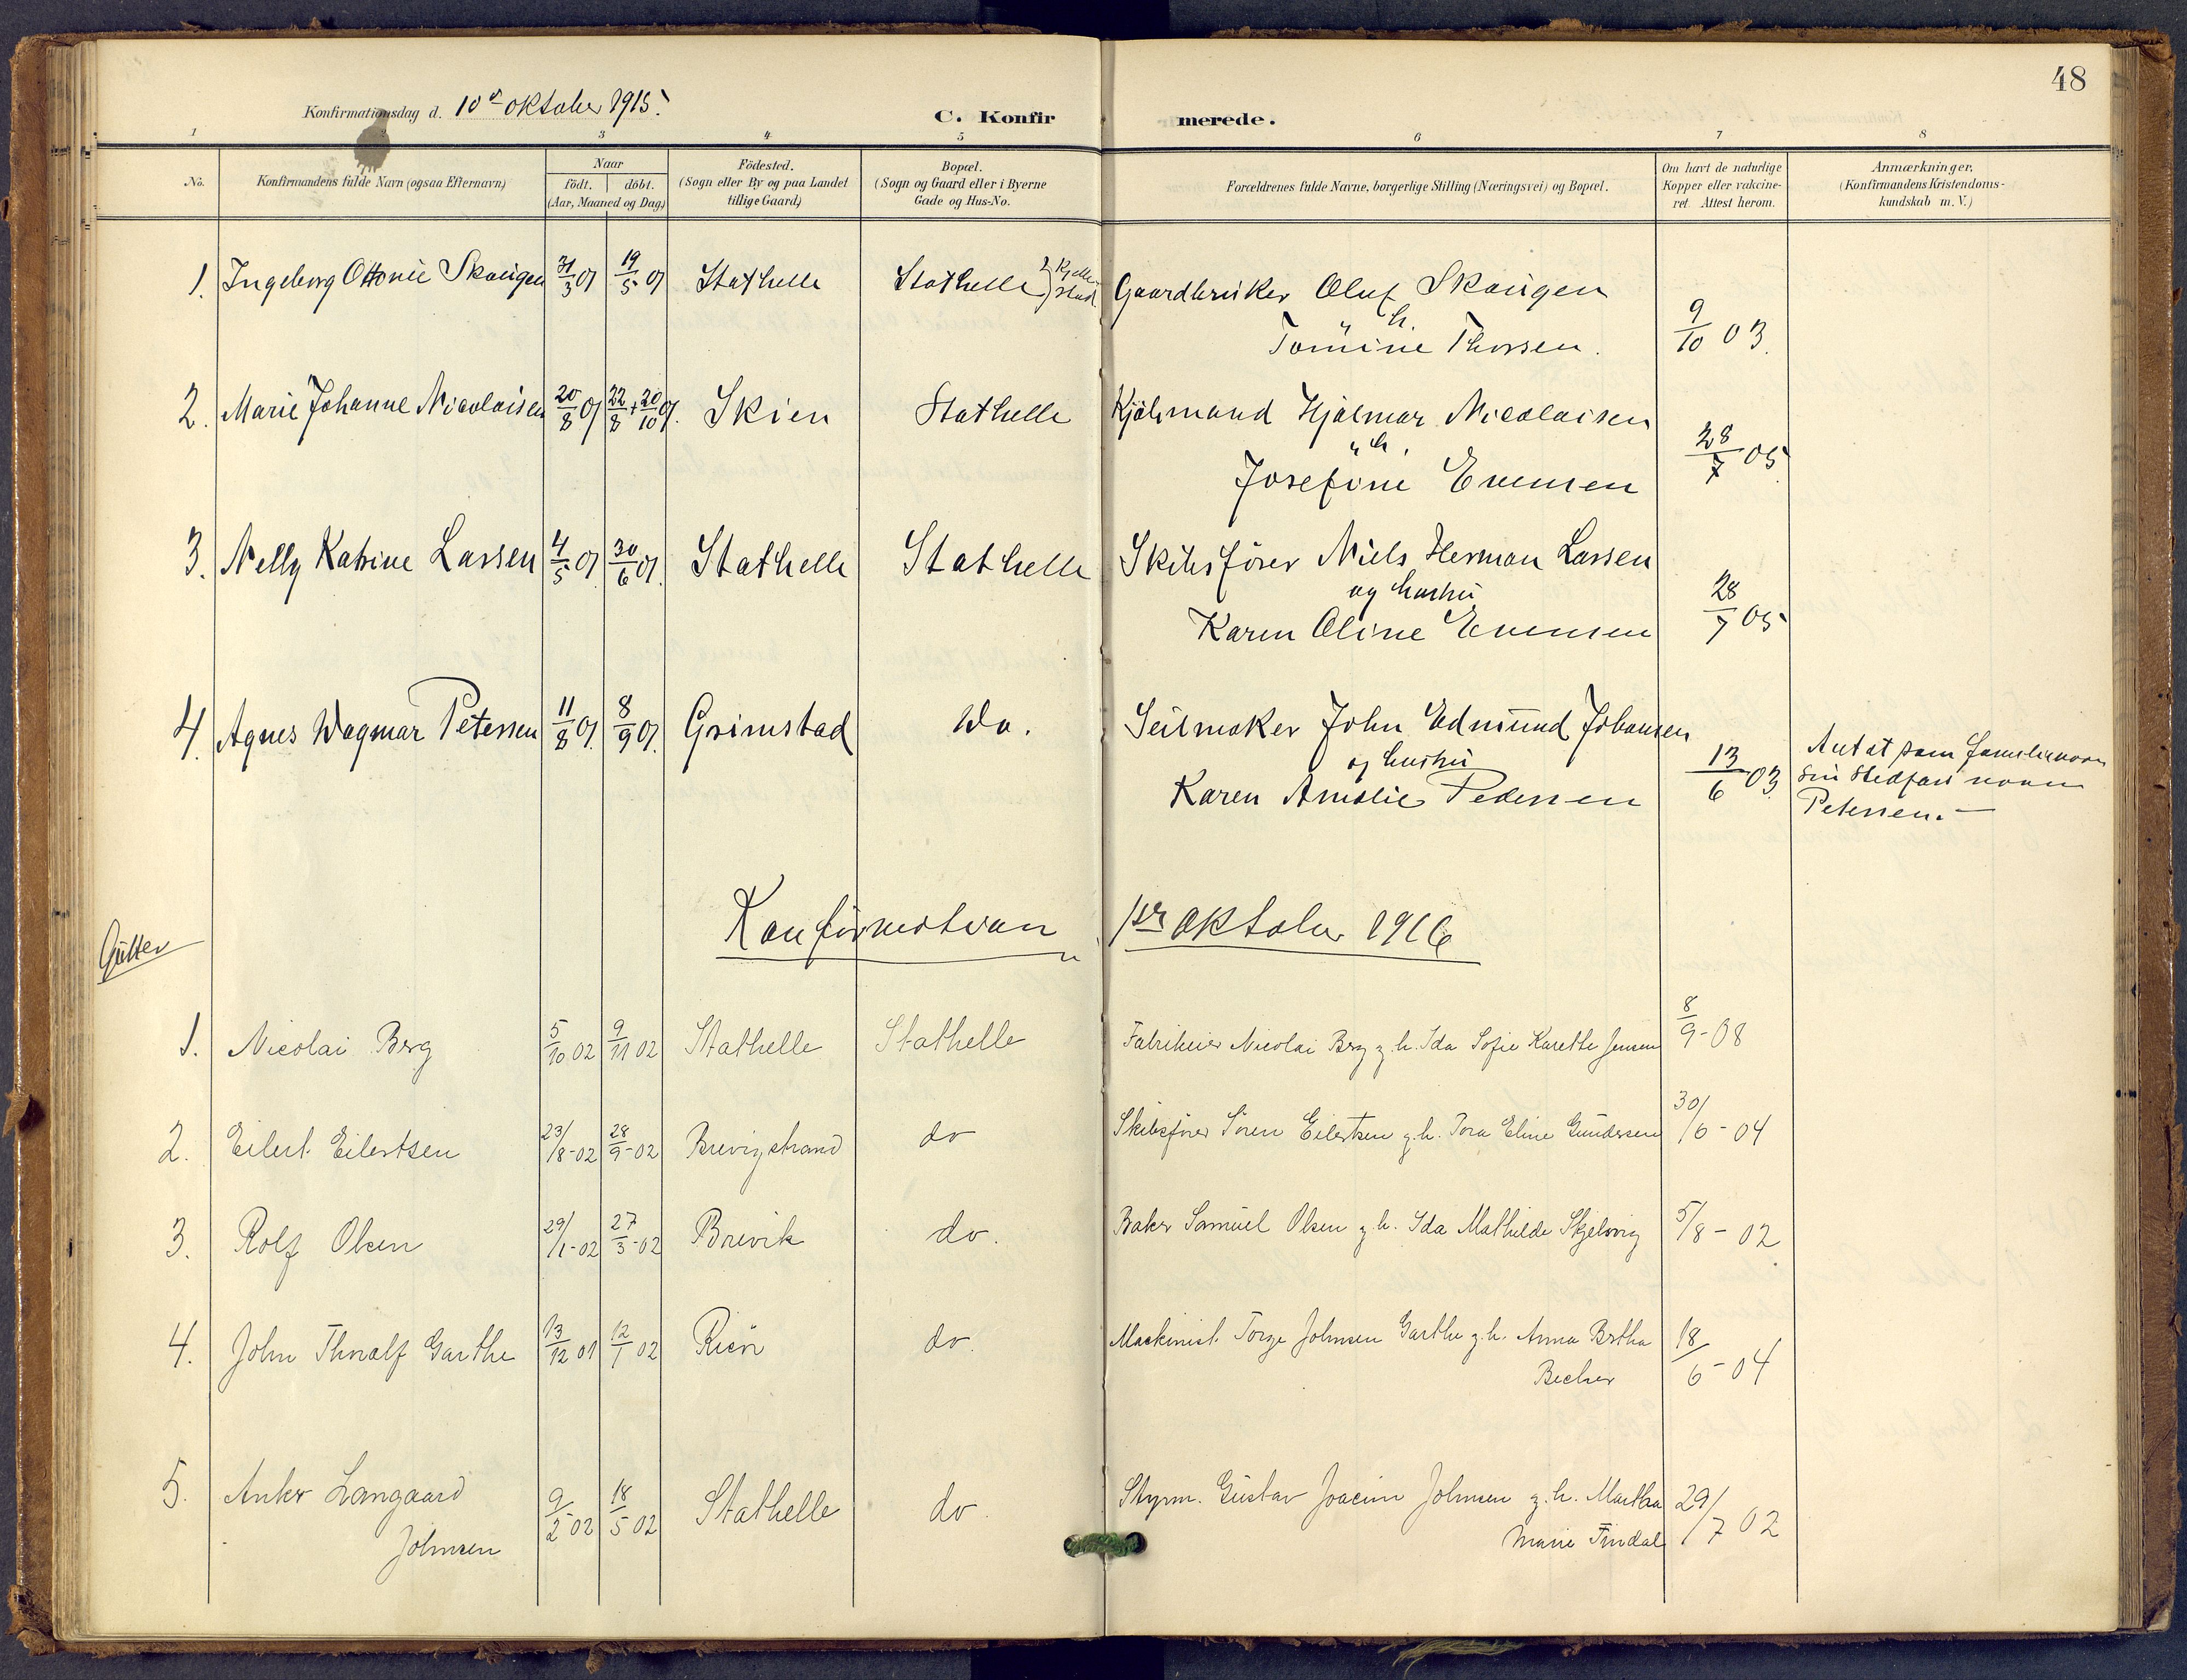 48
Konfirmationsdag d. 10de oktober 1915.
C. Konfirmerede.
1 2 3 4 5 6 7 8
No.
Konfirmandens fulde Navn (ogsaa Efternavn)
Naar
födt. döbt.
(Aar, Maaned og Dag)
Födested.
(Sogn eller By og paa Landet
tillige Gaard)
Bopæl.
(Sogn og Gaard eller i Byerne
Gade og Hus-No.
Forældrenes fulde Navne, borgerlige Stilling (Næringsvei) og Bopæl.
Om havt de naturlige
Kopper eller vakcine-
ret. Attest herom.
Anmærkninger.
(Konfirmandens Kristendoms-
kundskab m. V.)
1. Ingeborg Ottonie Skougen 31/3 01 19/5 01 Stathelle Stathelle Gaardbruker Oluf Skougen
" h.
Tomine Thorsen. 9/10 03.
2. Marie Johanne Nicolaisen 20/8 01 22/8 + 20/10 01. Skien Stathelle Kjølmand Hjalmar Nicolaisen
" h.
Josefine Evensen 28/7 05
3. Nelly Katrine Lassen 4/5 01 30/6 01. Stathelle Stathelle Skibsfører Niels Herman Lassen
og hustru
Karen Oline Evensen 28/7 05
4. Agnes Dagmar Petersen 11/8 01. 8/9 01. Grimstad Do. Seilmaker John Edmund Johansen
og hustru
Karen Amalie Pedersen 13/6 03.
Antat som familienavn
sin stedfars navn
Petersen. —
Konfirmation 1ste oktober 1916
Gutter
1. Nicolai Berg 5/10 02 9/11 02 Stathelle Stathelle Fabrikeier Nicolai Berg g. h. Ida Sofie Karethe Jensen 8/9 - 08
2. Eilert Eilertsen 23/8 - 02 28/9 - 02 Brevigstrand do Skibsfører Sören Eilertsen g. h. Tora Eline Gundersen 30/6 - 04
3. Rolf Olsen 29/1 - 02 27/3 - 02 Brevik do. Baker Samuel Olsen g. h. Ida Mathilde Skjelvig 5/8 - 02
4. John Thoralf Garthe 13/12 01 12/1 02 Risör do. Maskinist Torge Johnsen Garthe g. h. Anna Bertha
Becker 18/6 - 04
5. Anker Langaard
Johnsen 9/2 - 02 18/5 02 Stathelle do. Styrm. Gustav Joacim Johnsen g. h. Martha
Marie Findal 29/7 02